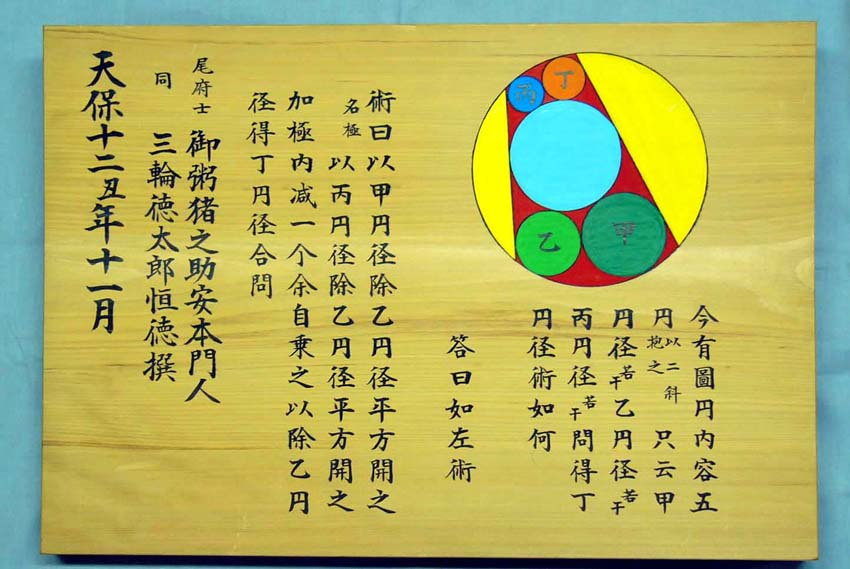 今有圖円内容五
円以二斜抱之只云甲
円径若干乙円径若干
丙円径若干問得丁
円径術如何
答曰如左術
術曰以甲円径除乙円径平方開之
名極以丙円径除乙円径平方開之
加極内減一个余自乗之以除乙円
径得丁円径合問
尾府士 御粥猪之助安本門人
同 三輪徳太郎恒徳撰
天保十二丑年十一月
丁
丙
乙
甲